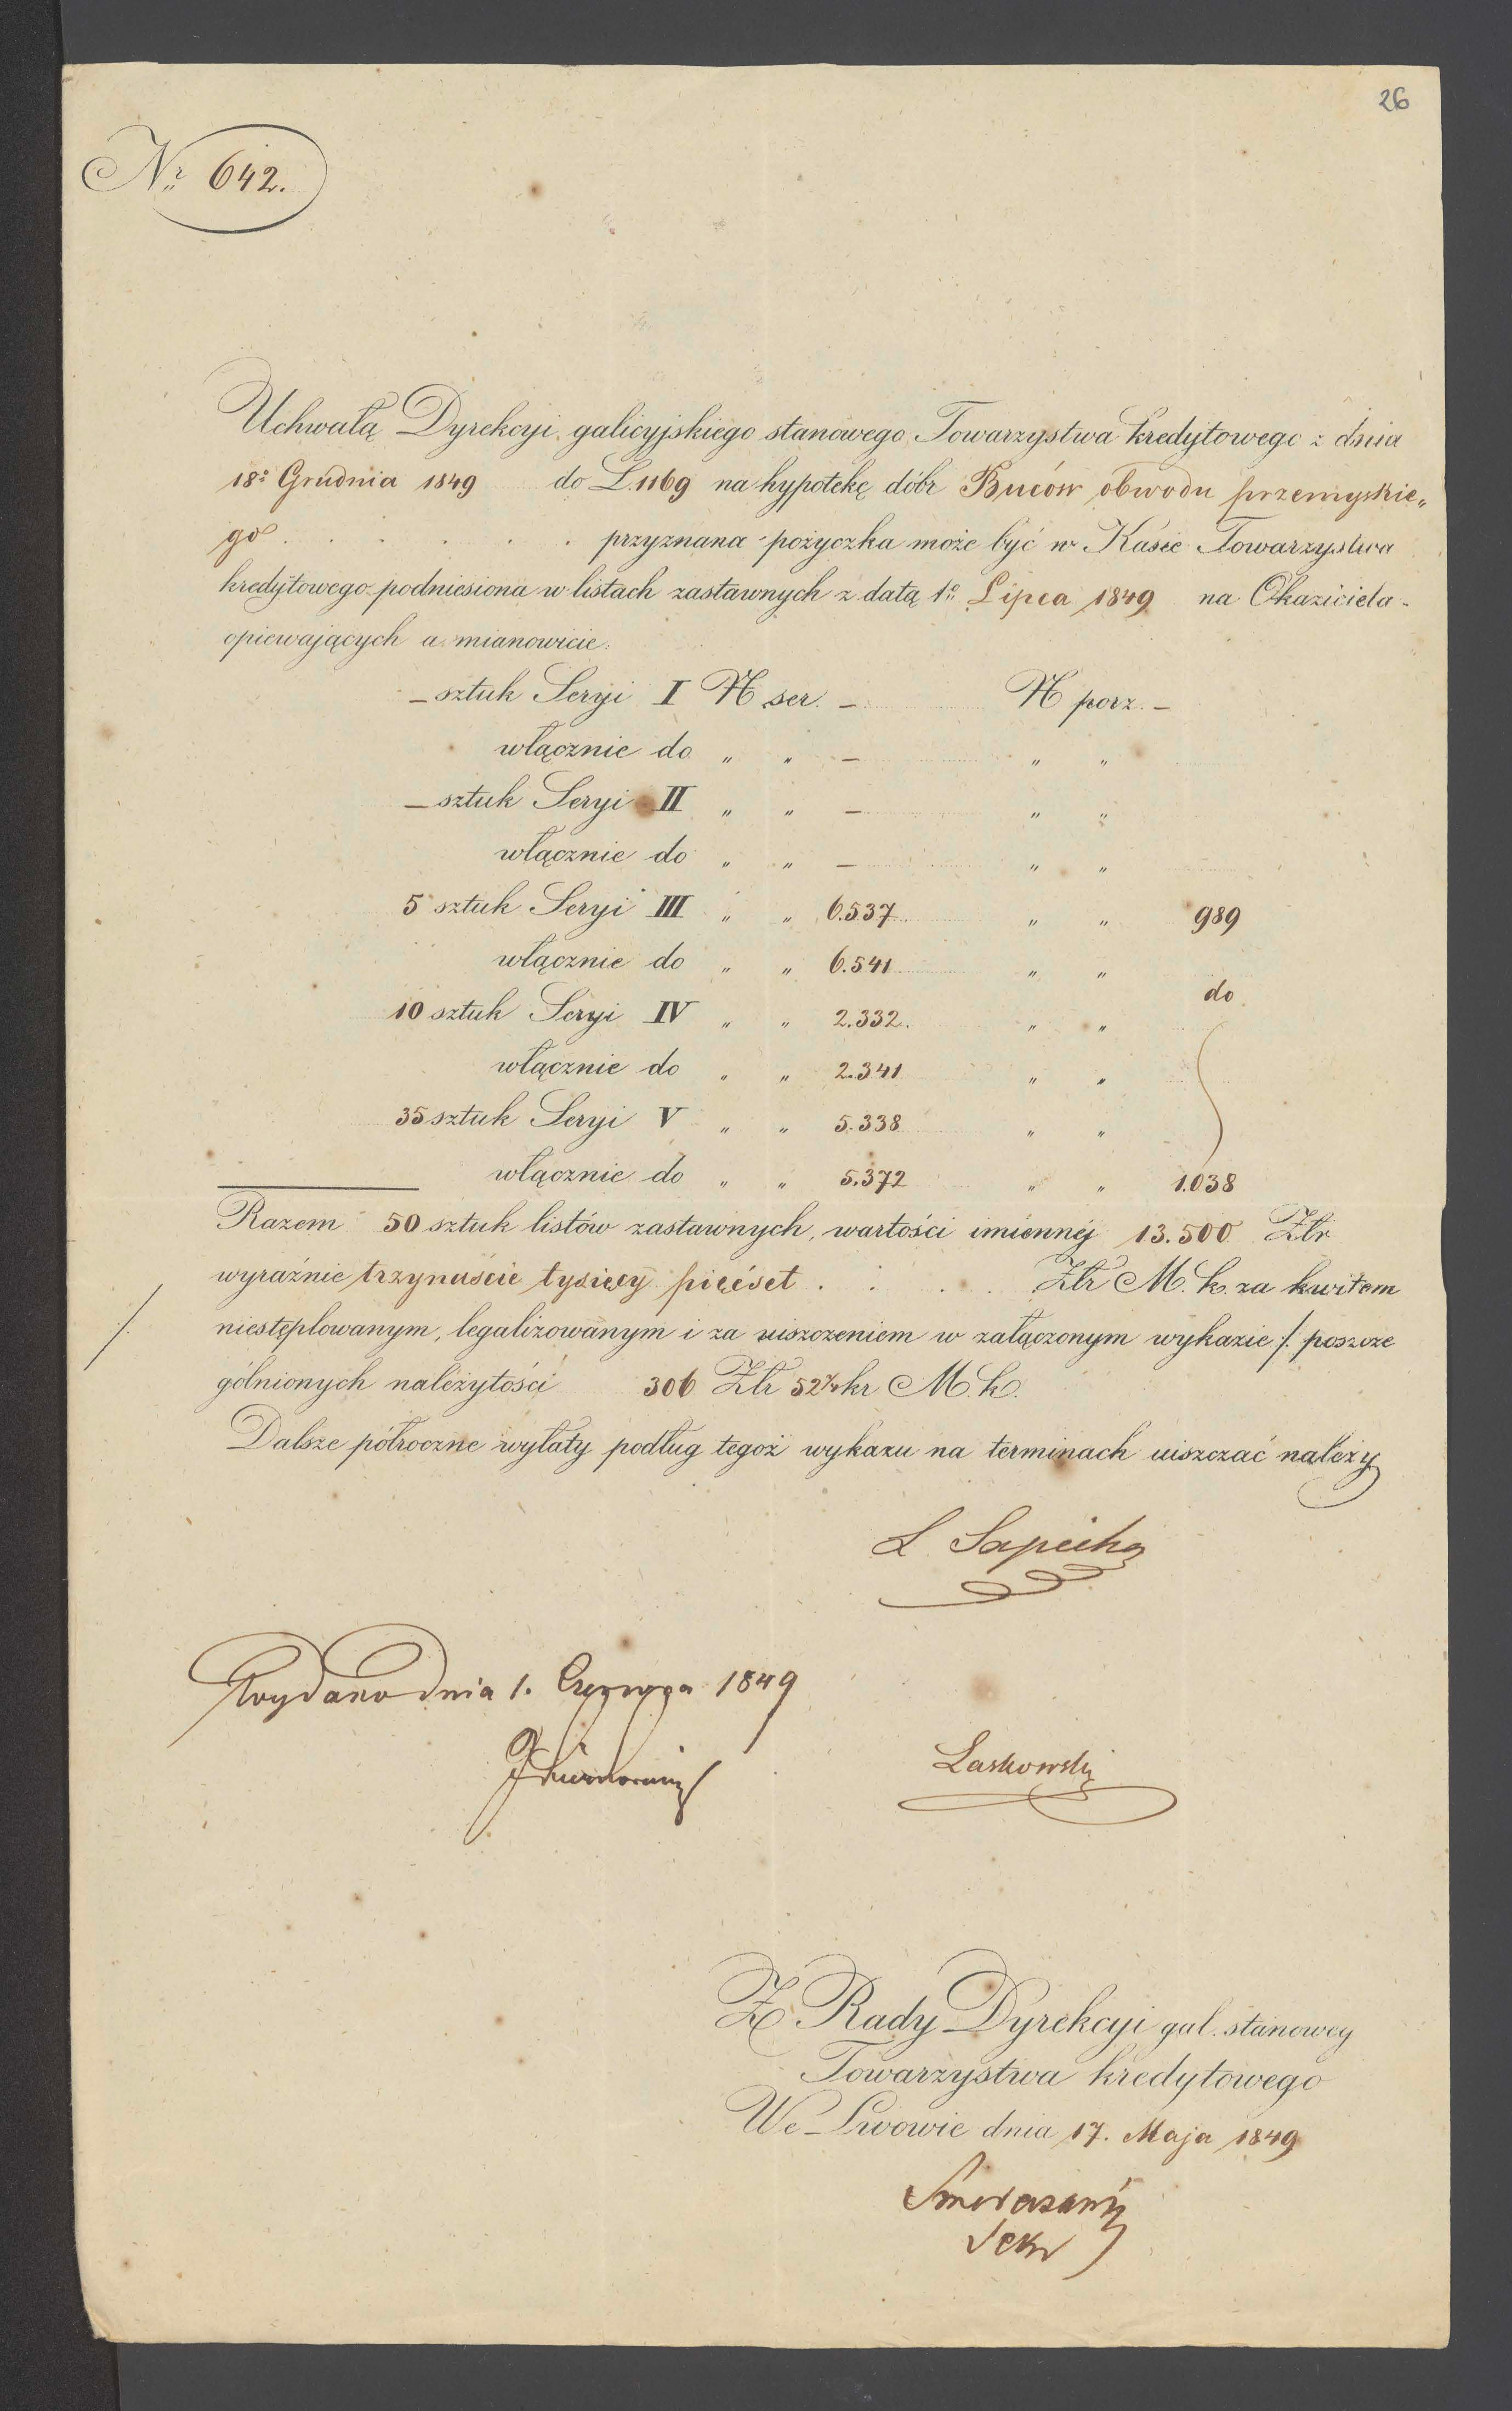 26
Nr 642.
Uchwałą Dyrekcyi galicyjskiego stanowego Towarzystwa kredytowego z dnia
18o Grudnia 1849 do L. 1169 na hypotekę dóbr Buców obwodu przemyskie„
go . . . . . . przyznana pożyczka może być w Kasie Towarzystwa
kredytowego podniesiona w listach zastawnych z datą 1o Lipca 1849 na Okaziciela
opiewających a mianowicie:
– sztuk Seryi I N ser. – N porz. –
włącznie do „ „ – „ „
– sztuk Seryi II „ „ – „ „
włącznie do „ „ – „ „
5 sztuk Seryi III „ „ 6.537 „ „ 989
włącznie do „ „ 6.541 „ „
do
10 sztuk Seryi IV „ „ 2.332. „ „
włącznie do „ „ 2.341 „ „
35 sztuk Seryi V „ „ 5.338 „ „
włącznie do „ „ 5.372 „ „ 1.038
Razem 50 sztuk listów zastawnych, wartości imiennéj 13.500 Złr
wyraźnie trzynaście tysięcy pięćset . . . . Złr M. k. za kwitem
niestęplowanym, legalizowanym i za uiszczeniem w załączonym wykazie /. poszcze
gólnionych należytości 306 Złr 52 kr M. k.
Dalsze półroczne wyłaty podług tegoż wykazu na terminach uiszczać należy
L. Sapieha
Wydano dnia 1. Czerwca 1849
Laskowski
Z Rady Dyrekcyi gal. stanowey
Towarzystwa kredytowego
We Lwowie dnia 17. Maja 1849
Sekr